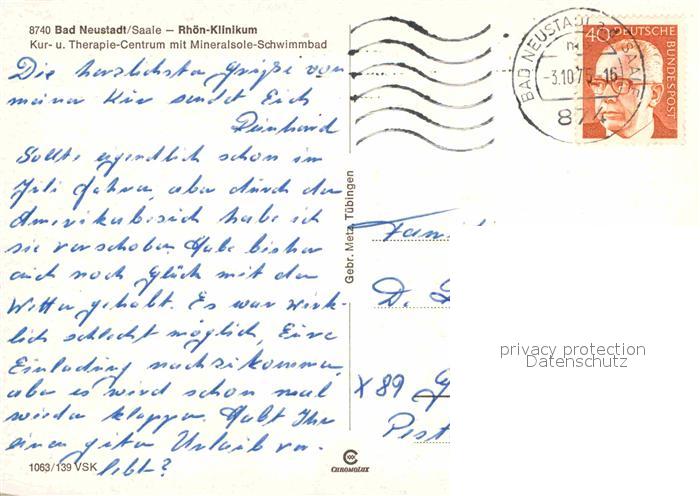 8740 Bad Neustadt/Saale — Rhön-Klinikum
Kur- u. Therapie-Centrum mit Mineralsole-Schwimmbad
Die herzlichsten Grüße von
meiner Kur sendet Euch
Reinhard
Sollte eigentlich schon im
Juli fahren, aber durch den
Amerikabesuch habe ich
sie verschoben. Habe bisher
auch noch Glück mit dem
Wetter gehabt. Es war wirk-
lich schlecht möglich, Eure
Einladung nachzukommen,
aber es wird schon mal
wieder klappen. Habt Ihr
einen guten Urlaub ver-
lebt?
1063/139 VSK
Gebr. Metz, Tübingen
CHROMOLUX
BAD NEUSTADT SAALE
-3.10.75-16
874
40 DEUTSCHE BUNDESPOST
Fam
D.
X 89
privacy protection
Datenschutz